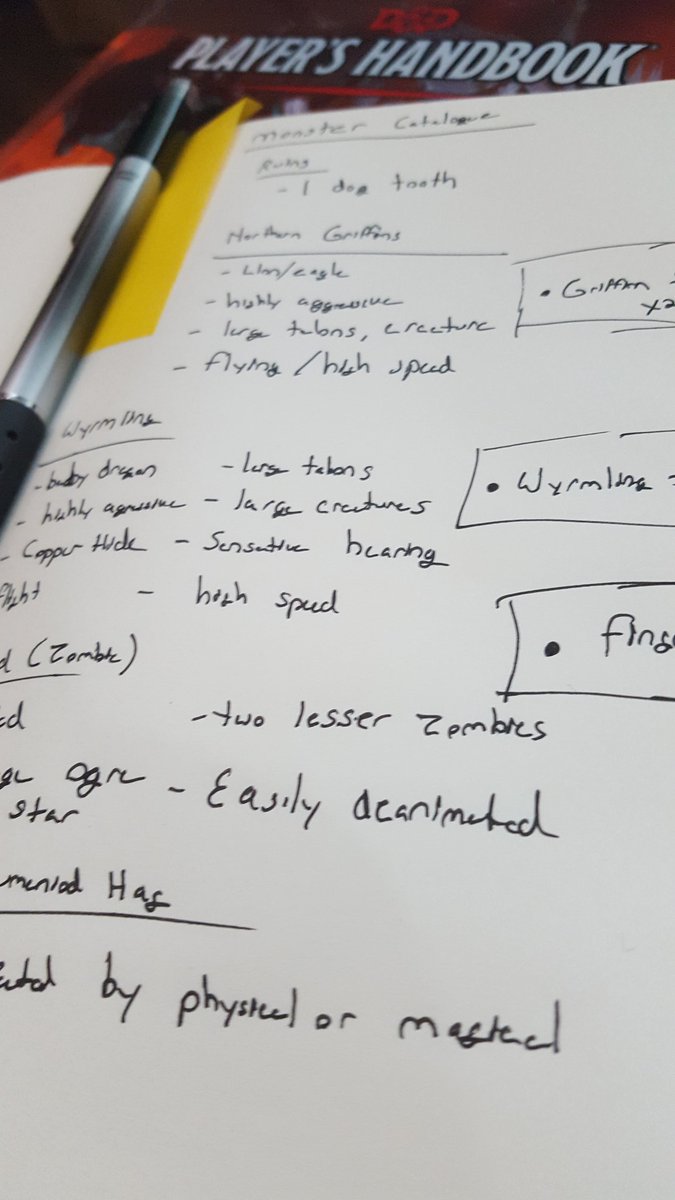 D&D
PLAYER'S HANDBOOK
Monster Catalogue
- 1 dog tooth
Northern Griffins
- Lion/eagle
- highly aggressive
- large talons, creature
- flying / high speed
• Griffin
x2
Wyrmling
- baby dragon
- large talons
- highly agressive
- large creatures
- Copper Hide
- Sensative hearing
flight
- high speed
• Wyrmling
(Zombie)
- two lesser Zombies
ogre
star
- Easily deanimated
Hag
by physical or magical